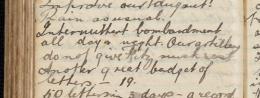 Improve our dugout!
Rain as usual.
Intermittent bombardment
all day & night. Our artillery
do not give much rest
Another great budget of
letters - 19.
50 letters in 3 days - a record